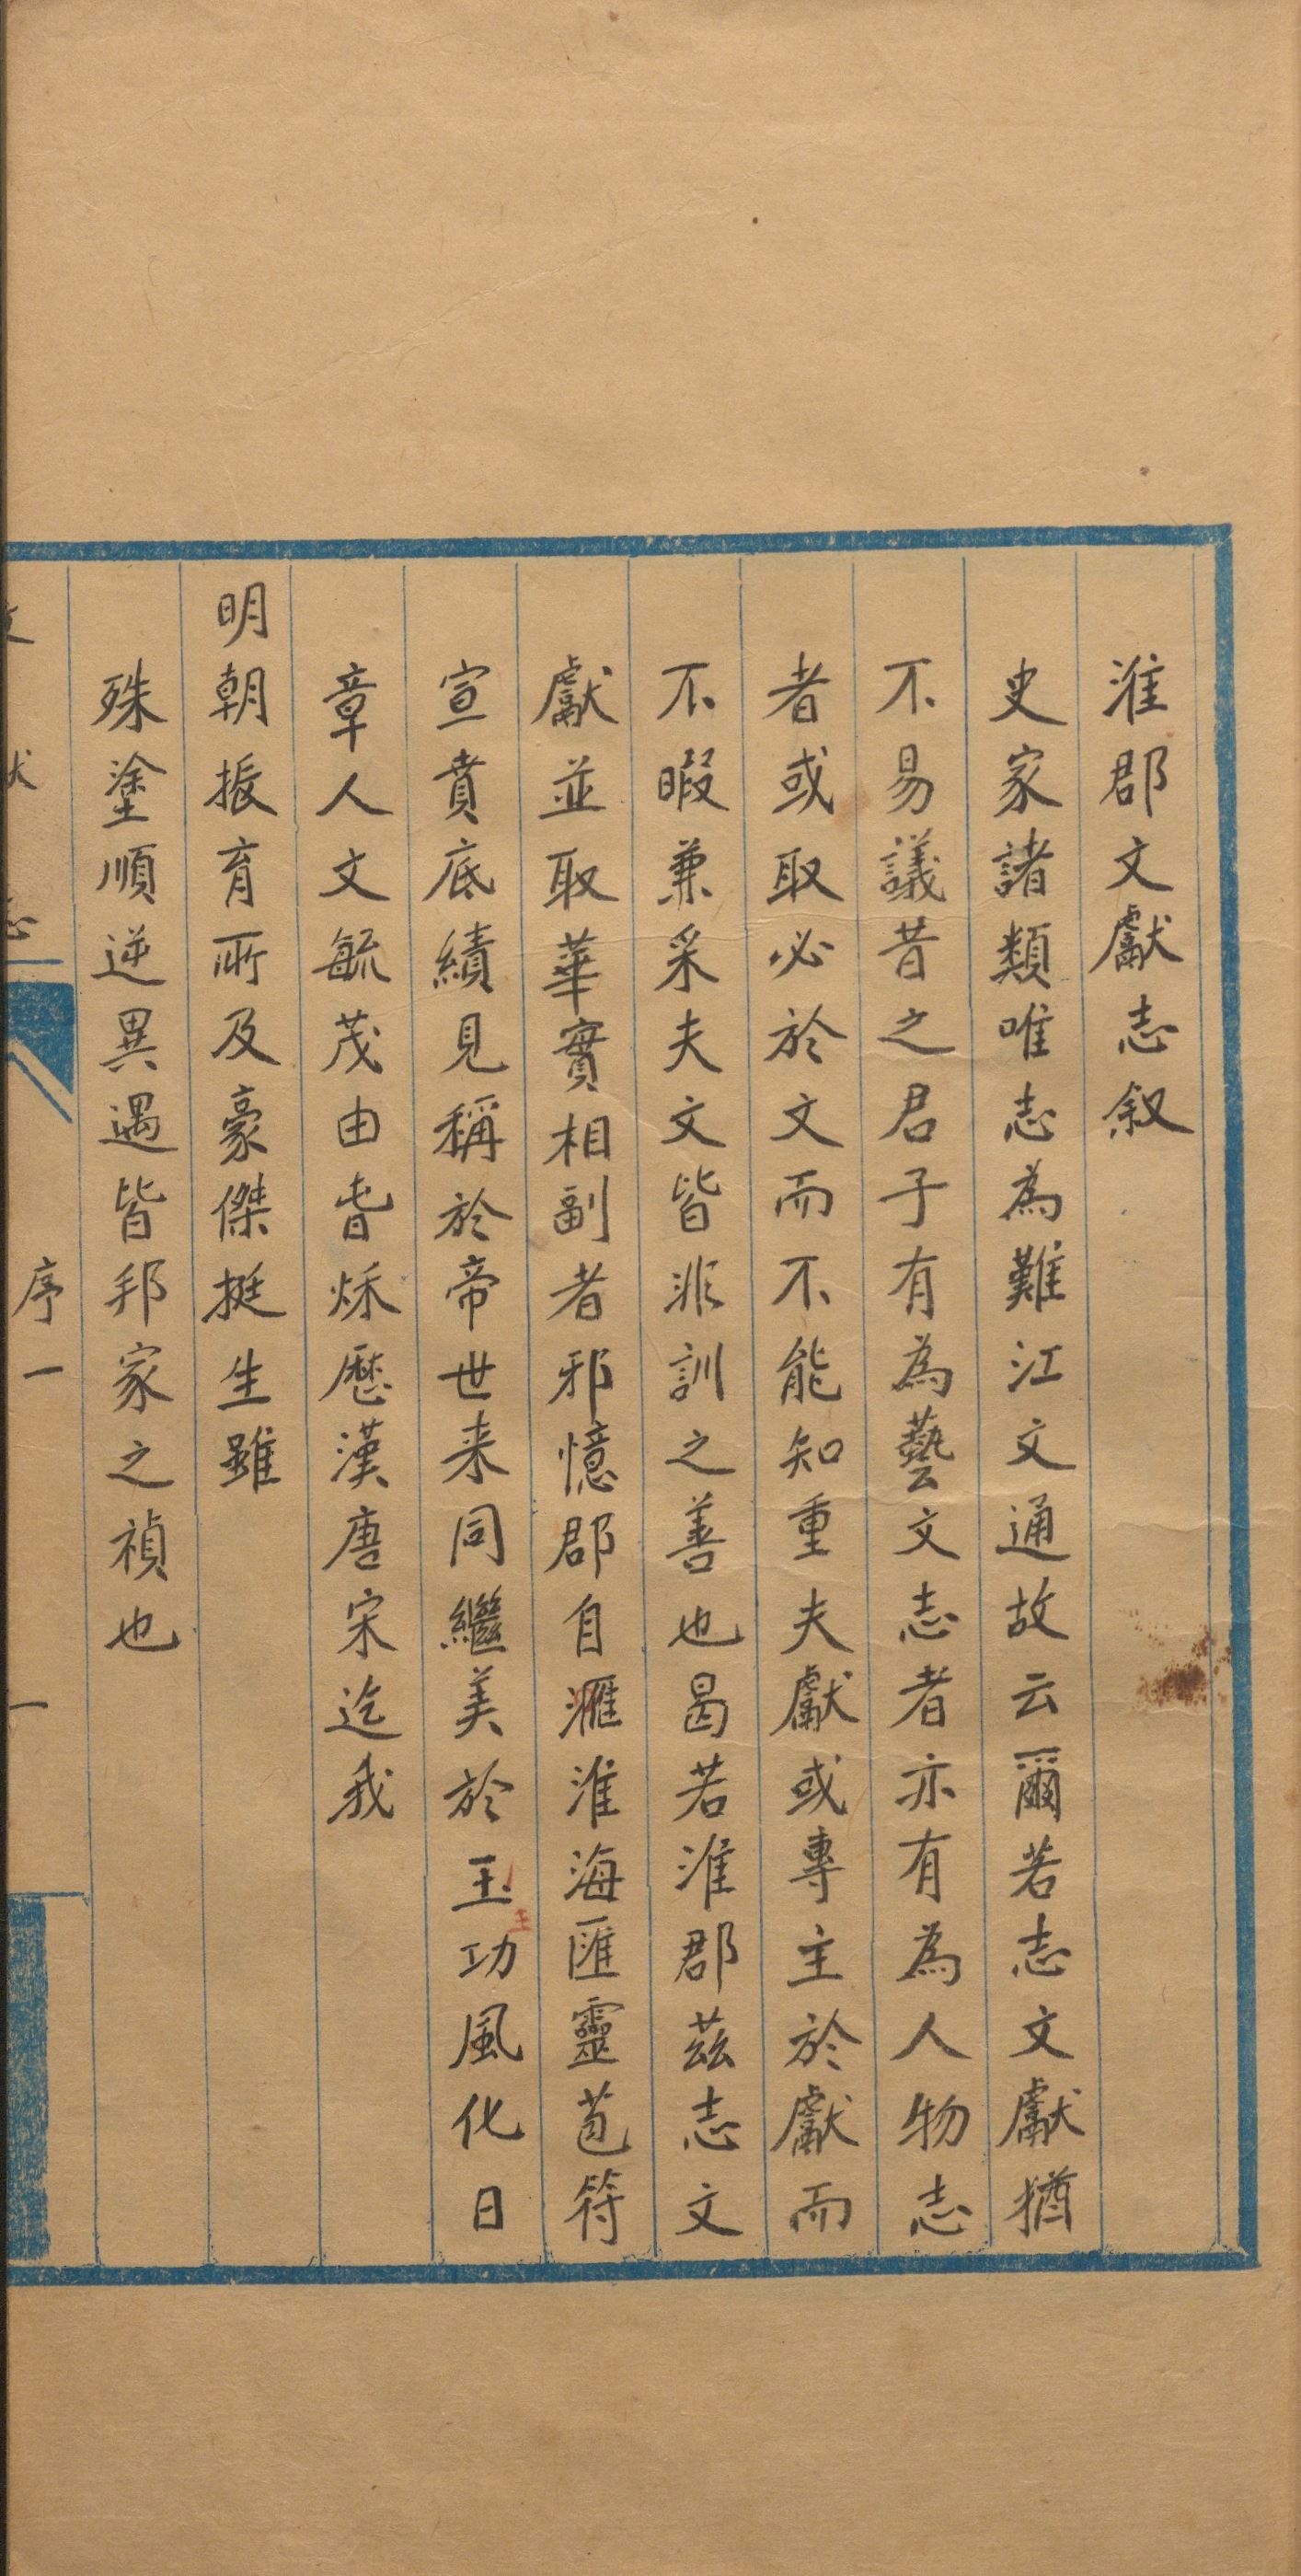 淮郡文獻志叙
史家諸類唯志為難江文通故云爾若志文獻猶
不易議昔之君子有為藝文志者亦有為人物志
者或取必於文而不能知重夫獻或專主於獻而
不暇兼采夫文皆非訓之善也曷若淮郡茲志文
獻並取華實相副者邪憶郡自滙淮海匯靈苞符
宣賁底績見稱於帝世来同繼美於王功風化日
王
章人文毓茂由旹烁歷漢唐宋迄我
明朝振育所及豪傑挺生雖
殊塗順逆異遇皆邦家之禎也
序一
一